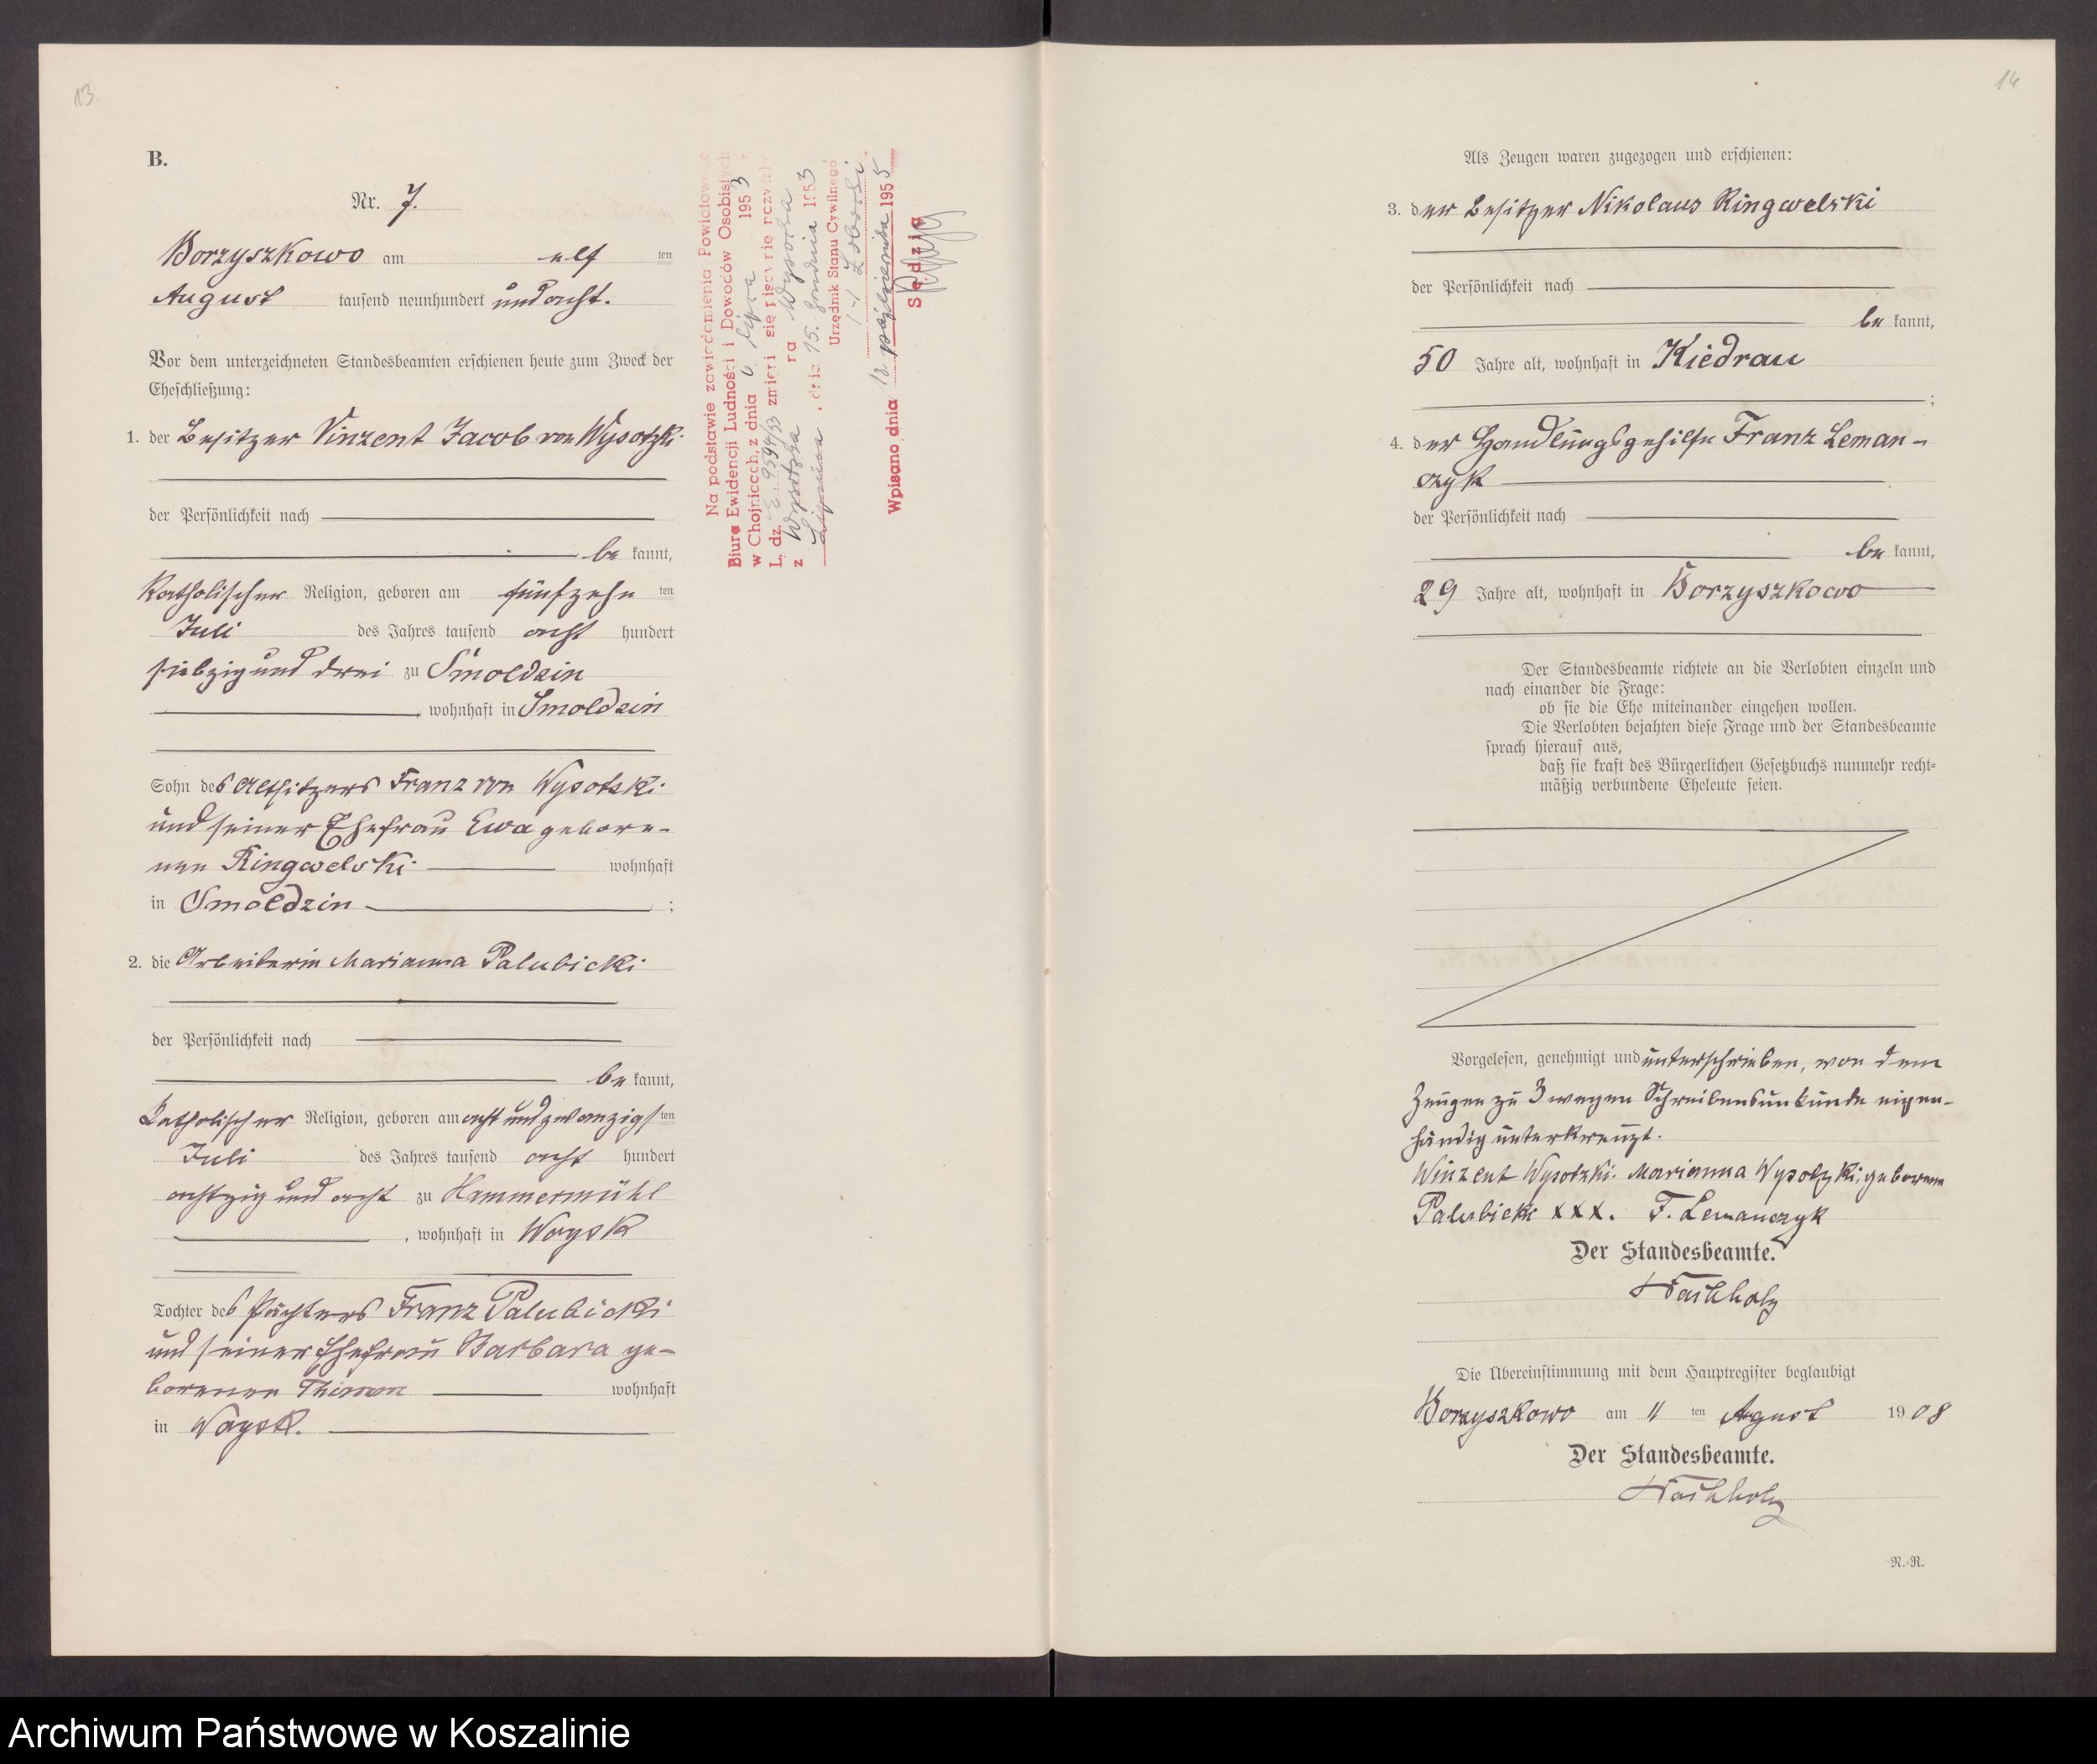 13.
B.
Nr. 7.
Borzyszkowo am elf ten
August tausend neunhundert und acht.
Vor dem unterzeichneten Standesbeamten erschienen heute zum Zweck der
Eheschließung:
1. der Besitzer Vinzent Jacob von Wysotzki
der Persönlichkeit nach
be kannt,
Katholischer Religion, geboren am fünfzehn ten
Juli des Jahres tausend acht hundert
siebzig und drei zu Smoldzin
, wohnhaft in Smoldzin
Sohn des Altsitzers Franz von Wysotzki
und seiner Ehefrau Ewa gebore-
nen Ringwelski wohnhaft
in Smoldzin ;
2. die Arbeiterin Marianna Palubicki
der Persönlichkeit nach
be kannt,
Katholischer Religion, geboren am acht und zwanzigs ten
Juli des Jahres tausend acht hundert
achtzig und acht zu Hammermühl
, wohnhaft in Woysk
Tochter des Pächters Franz Palubicki
und seiner Ehefrau Barbara ge-
borenen wohnhaft
in Woysk.
Na podstawie zawiadomienia Powiatowego
Biura Ewidencji Ludności i Dowodów Osobistych
w Chojnicach, z dnia 6 lipca 1953 r.
L. dz. 9594/53 zmieni się pisownię nazwiska
z Wysotzka na Wysocka
Lipnica, dnia 15. grudnia 1953
Urzędnik Stanu Cywilnego
Wpisano dnia 12 października 1955
Sędzia
14
Als Zeugen waren zugezogen und erschienen:
3. der Besitzer Nikolaus Ringwelski
der Persönlichkeit nach
be kannt,
50 Jahre alt, wohnhaft in Kiedrau
;
4. der Handlungsgehilfe Franz Leman-
czyk
der Persönlichkeit nach
be kannt,
29 Jahre alt, wohnhaft in Borzyszkowo
Der Standesbeamte richtete an die Verlobten einzeln und
nach einander die Frage:
ob sie die Ehe miteinander eingehen wollen.
Die Verlobten bejahten diese Frage und der Standesbeamte
sprach hierauf aus,
daß sie kraft des Bürgerlichen Gesetzbuchs nunmehr recht-
mäßig verbundene Eheleute seien.
Vorgelesen, genehmigt und unterschrieben, von dem
Zeugen zu 3 wegen Schreibensunkunde eigen-
händig unterkreuzt.
Winzent Wysotzki. Marianna Wysotzki, geborene
Palubicki XXX. F. Lemanczyk
Der Standesbeamte.
Nachholz
Die Übereinstimmung mit dem Hauptregister beglaubigt
Borzyszkowo am 11 ten August 1908
Der Standesbeamte.
Nachholz
N.-R.
Archiwum Państwowe w Koszalinie